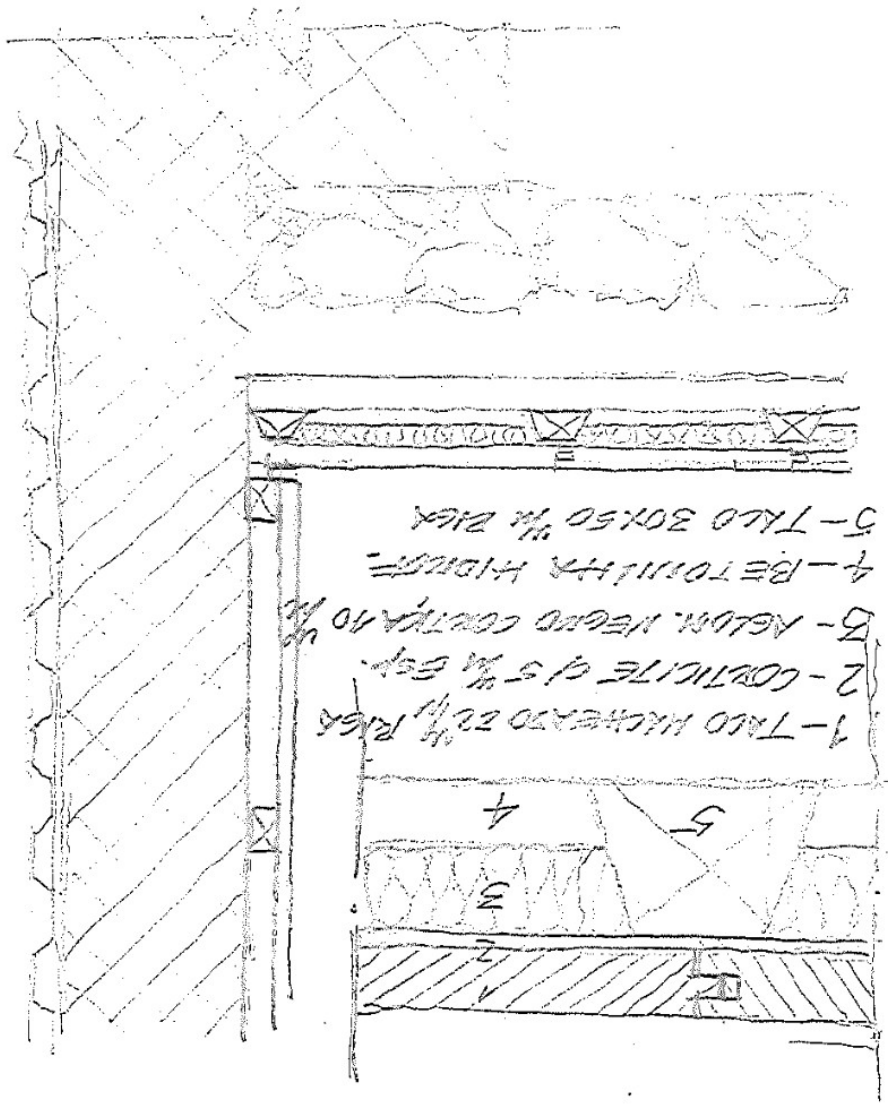 1 - TACO MACHEADO 22 m/m RIGA
2 - CORTICITE C/ 5 m/m ESP.
3 - AGLOM. NEGRO CORTIÇA 10 m/m
4 - BETONILHA HIDROF=
5 - TACO 30X50 m/m RIGA
1
2
3
4
5